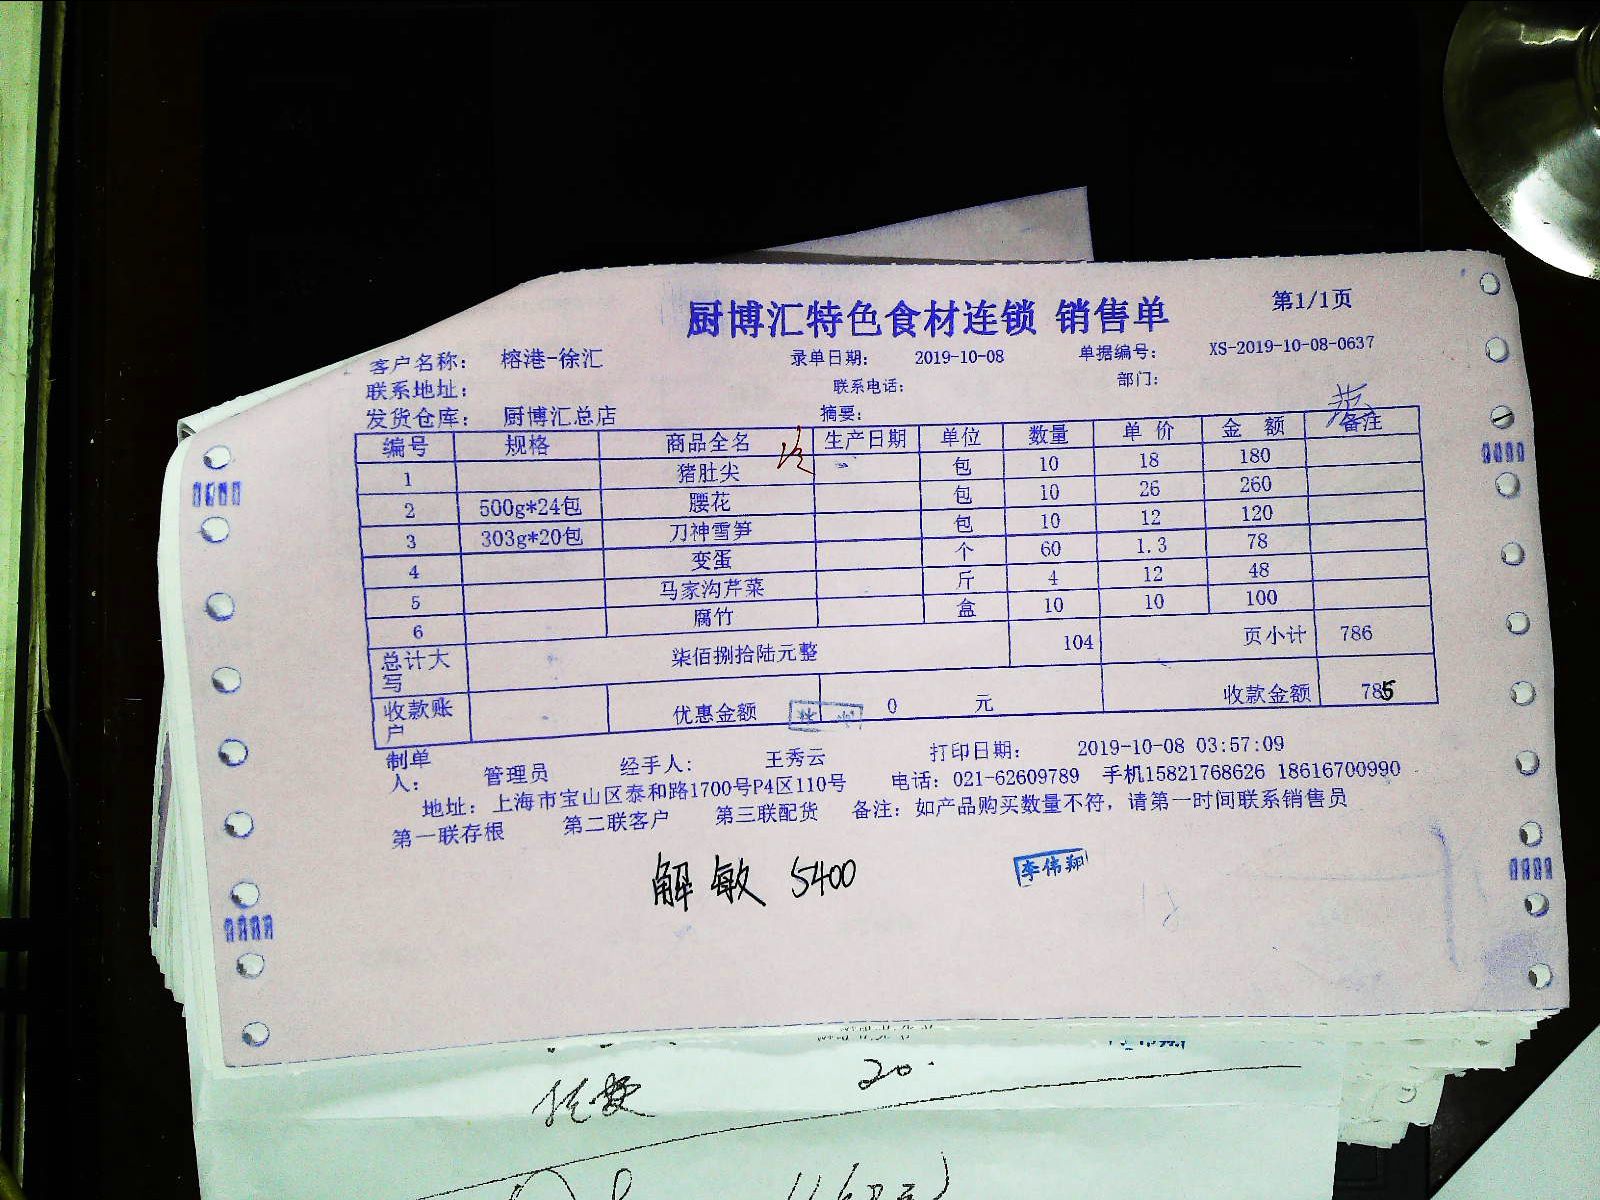 厨博汇特色食材连锁 销售单 第1/1页
客户名称: 榕港-徐汇 录单日期: 2019-10-08 单据编号: XS-2019-10-08-0637
联系地址: 联系电话: 部门:
发货仓库: 厨博汇总店 摘要:
编号 规格 商品全名 生产日期 单位 数量 单价 金额 备注
1 猪肚尖 包 10 18 180
2 500g*24包 腰花 包 10 26 260
3 303g*20包 刀神雪笋 包 10 12 120
4 变蛋 个 60 1.3 78
5 马家沟芹菜 斤 4 12 48
6 腐竹 盒 10 10 100
总计大写 柒佰捌拾陆元整 104 页小计 786
收款账户 优惠金额 0 元 收款金额 785
制单人: 管理员 经手人: 王秀云 打印日期: 2019-10-08 03:57:09
地址: 上海市宝山区泰和路1700号P4区110号 电话: 021-62609789 手机15821768626 18616700990
第一联存根 第二联客户 第三联配货 备注: 如产品购买数量不符, 请第一时间联系销售员
解敏 5400
李伟翔
20.